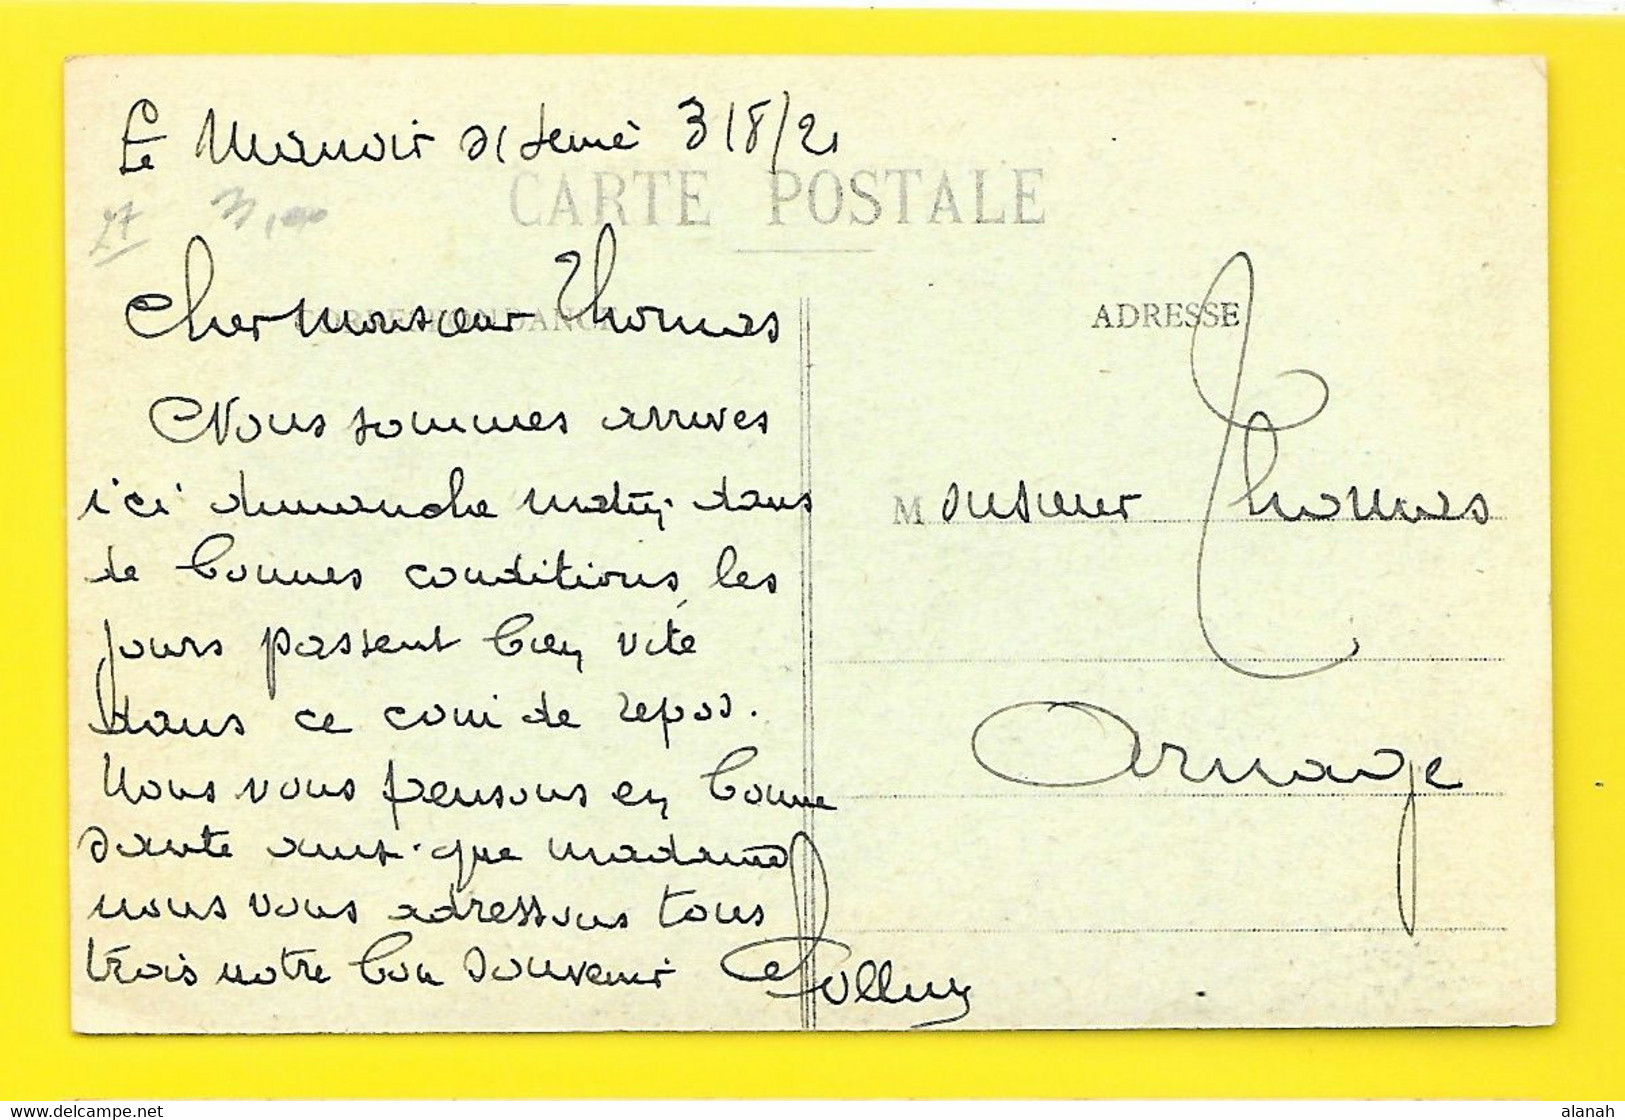 Le Manoir s/ Seine 3/8/21
27 3,00
CARTE POSTALE
Cher Monsieur Thomas
CORRESPONDANCE
Nous sommes arrives
ici dimanche matin dans
de bonnes conditions, les
jours passent bien vite
dans ce coin de repos.
Nous vous pensons en bonne
sante ainsi que madame
nous vous adressons tous
trois notre bon souvenir
ADRESSE
Monsieur Thomas
Arnage
alanah